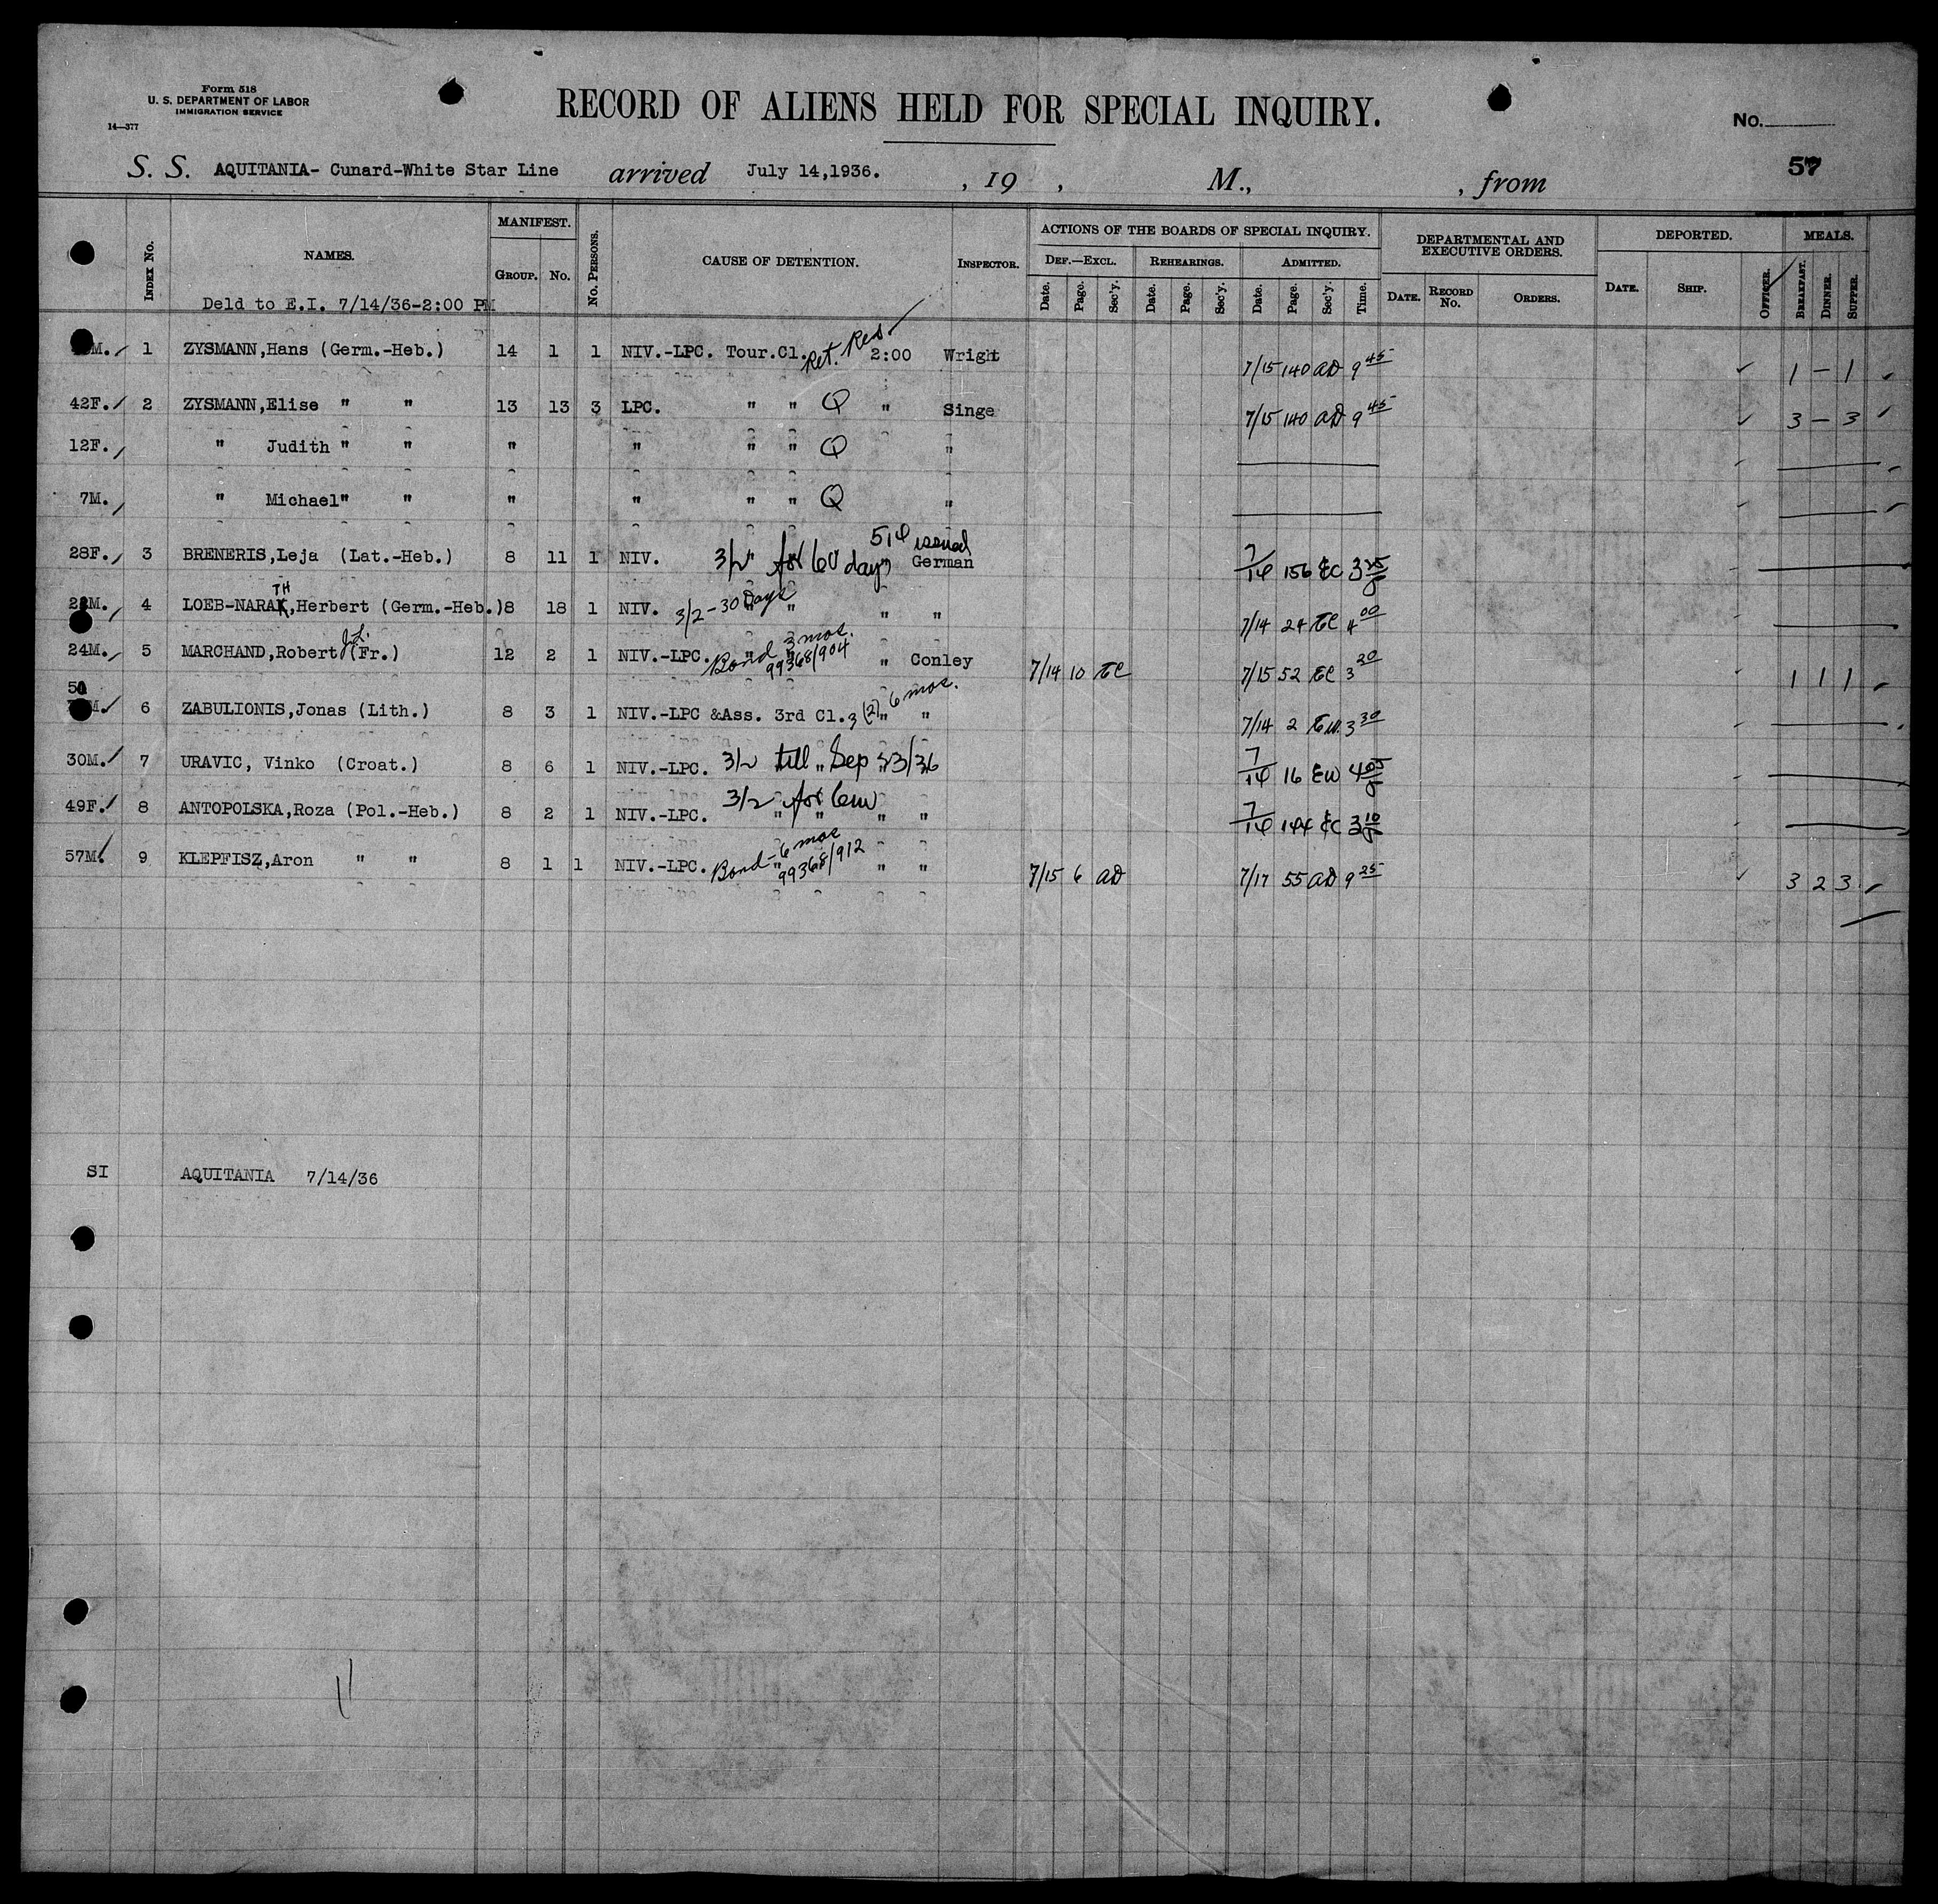 Form 518
U. S. DEPARTMENT OF LABOR
IMMIGRATION SERVICE
14—377
RECORD OF ALIENS HELD FOR SPECIAL INQUIRY.
No.
57
S. S. AQUITANIA- Cunard-White Star Line arrived July 14,1936. , 19 , M., , from
INDEX No. NAMES. MANIFEST. GROUP. No. No. PERSONS. CAUSE OF DETENTION. INSPECTOR. ACTIONS OF THE BOARDS OF SPECIAL INQUIRY. DEPARTMENTAL AND EXECUTIVE ORDERS. DEPORTED. MEALS.
DEF.—EXCL. REHEARINGS. ADMITTED.
Date. Page. Sec'y. Date. Page. Sec'y. Date. Page. Sec'y. Time. DATE. RECORD No. ORDERS. DATE. SHIP. OFFICER. BREAKFAST. DINNER. SUPPER.
Deld to E.I. 7/14/36-2:00 PM
M. 1 ZYSMANN,Hans (Germ.-Heb.) 14 1 1 NIV.-LPC. Tour.Cl. Ret. Res. 2:00 Wright 7/15 140 AD 9 45 1 — 1
42F. 2 ZYSMANN,Elise " " 13 13 3 LPC. " " Q " Singe 7/15 140 AD 9 45 3 — 3
12F. " Judith " " " " " " Q "
7M. " Michael" " " " " " Q "
28F. 3 BRENERIS,Leja (Lat.-Heb.) 8 11 1 NIV. 3/2 for 60 days 514 issued German 7/14 156 EC 3 25
M. 4 LOEB-NARATH,Herbert (Germ.-Heb.) 8 18 1 NIV. 3/2-30 Days " " 7/14 24 EC 4 00
24M. 5 MARCHAND,Robert J.L. (Fr.) 12 2 1 NIV.-LPC. Bond 3 mos. 99368/904 " Conley 7/14 10 EC 7/15 52 EC 3 20 1 1 1
M. 6 ZABULIONIS,Jonas (Lith.) 8 3 1 NIV.-LPC &Ass. 3rd Cl. 3(2) 6 mos. " " 7/14 2 EW 3 30
30M. 7 URAVIC, Vinko (Croat.) 8 6 1 NIV.-LPC. 3/2 till Sep 23/36 7/14 16 EW 4 05
49F. 8 ANTOPOLSKA,Roza (Pol.-Heb.) 8 2 1 NIV.-LPC. 3/2 for 6m " " " " 7/14 144 EC 3 10
57M. 9 KLEPFISZ,Aron " " 8 1 1 NIV.-LPC. Bond-6 mos 99368/912 " " 7/15 6 AD 7/17 55 AD 9 25 3 2 3
SI AQUITANIA 7/14/36